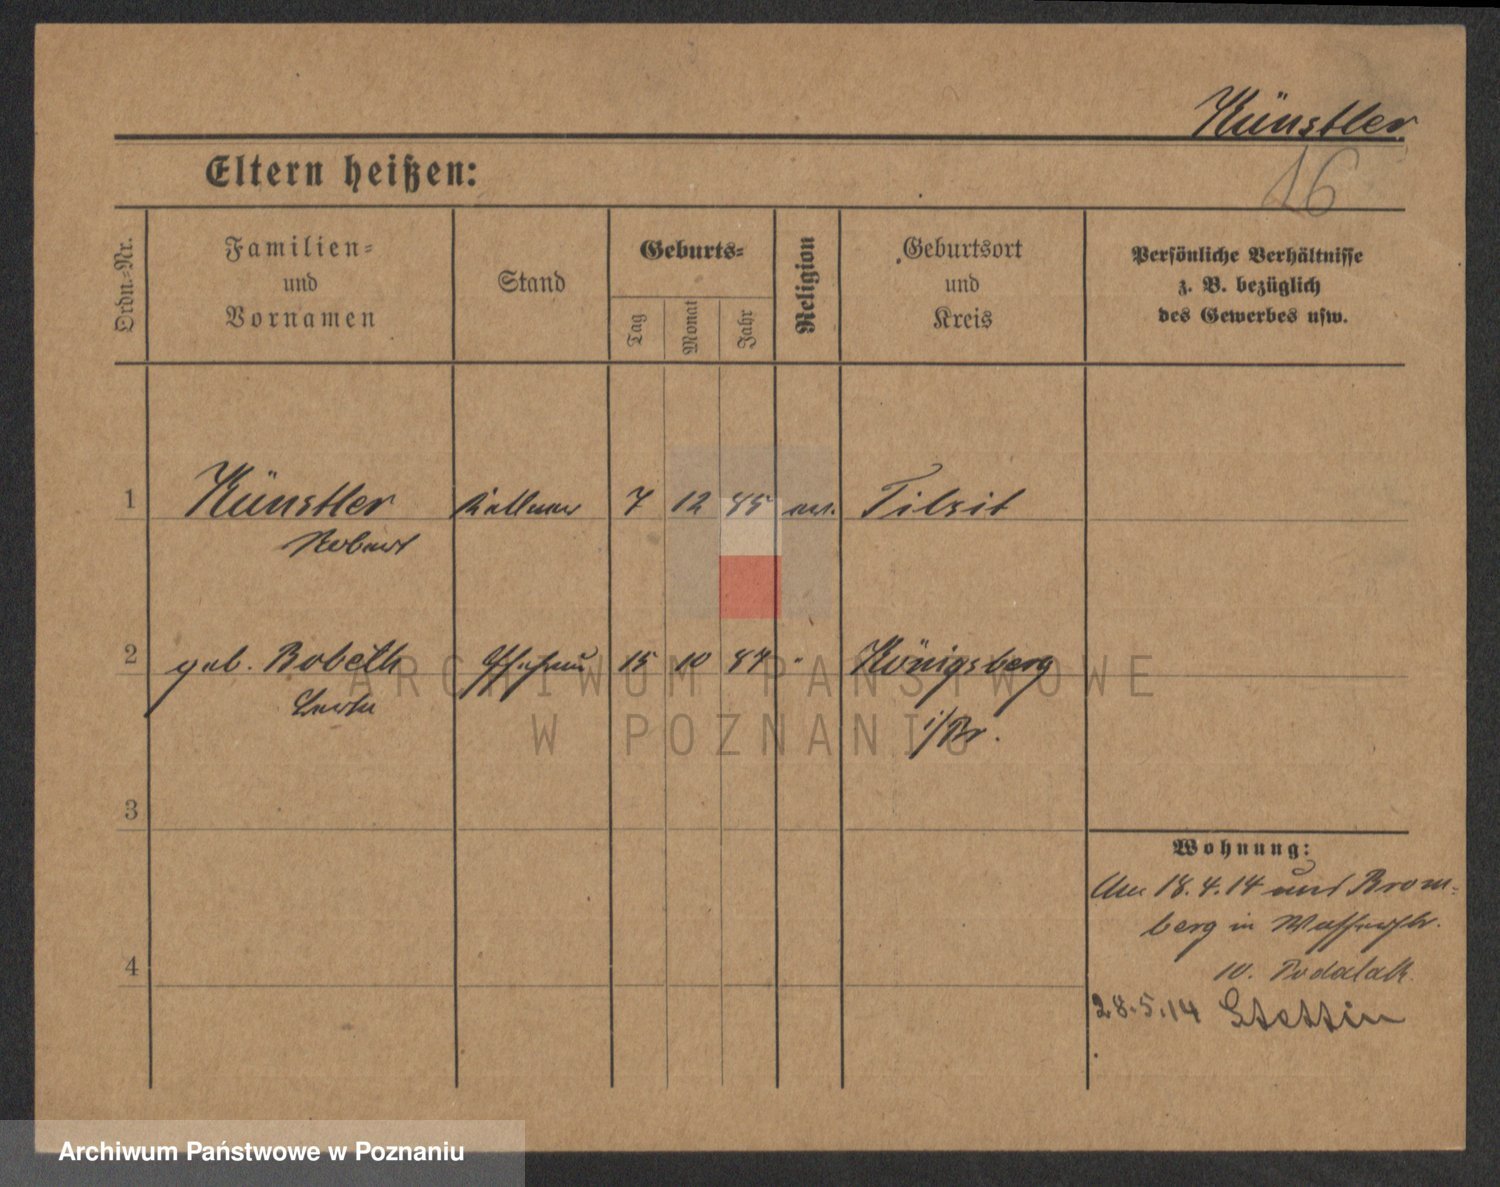 Künstler
16
Eltern heißen:
Ordn.-Nr.
Familien-
und
Vornamen
Stand
Geburts-
Tag
Monat
Jahr
Religion
Geburtsort
und
Kreis
Persönliche Verhältnisse
z. B. bezüglich
des Gewerbes usw.
1 Künstler Kellner 7 12 85 ev. Tilsit
Robert
2 geb. Bobeth Ehefrau 15 10 87 " Königsberg
i/Pr.
3
4
Wohnung:
Am 18.4.14 Brom-
berg in
10. Podolak
28.5.14 Stettin
ARCHIWUM PAŃSTWOWE
W POZNANIU
Archiwum Państwowe w Poznaniu